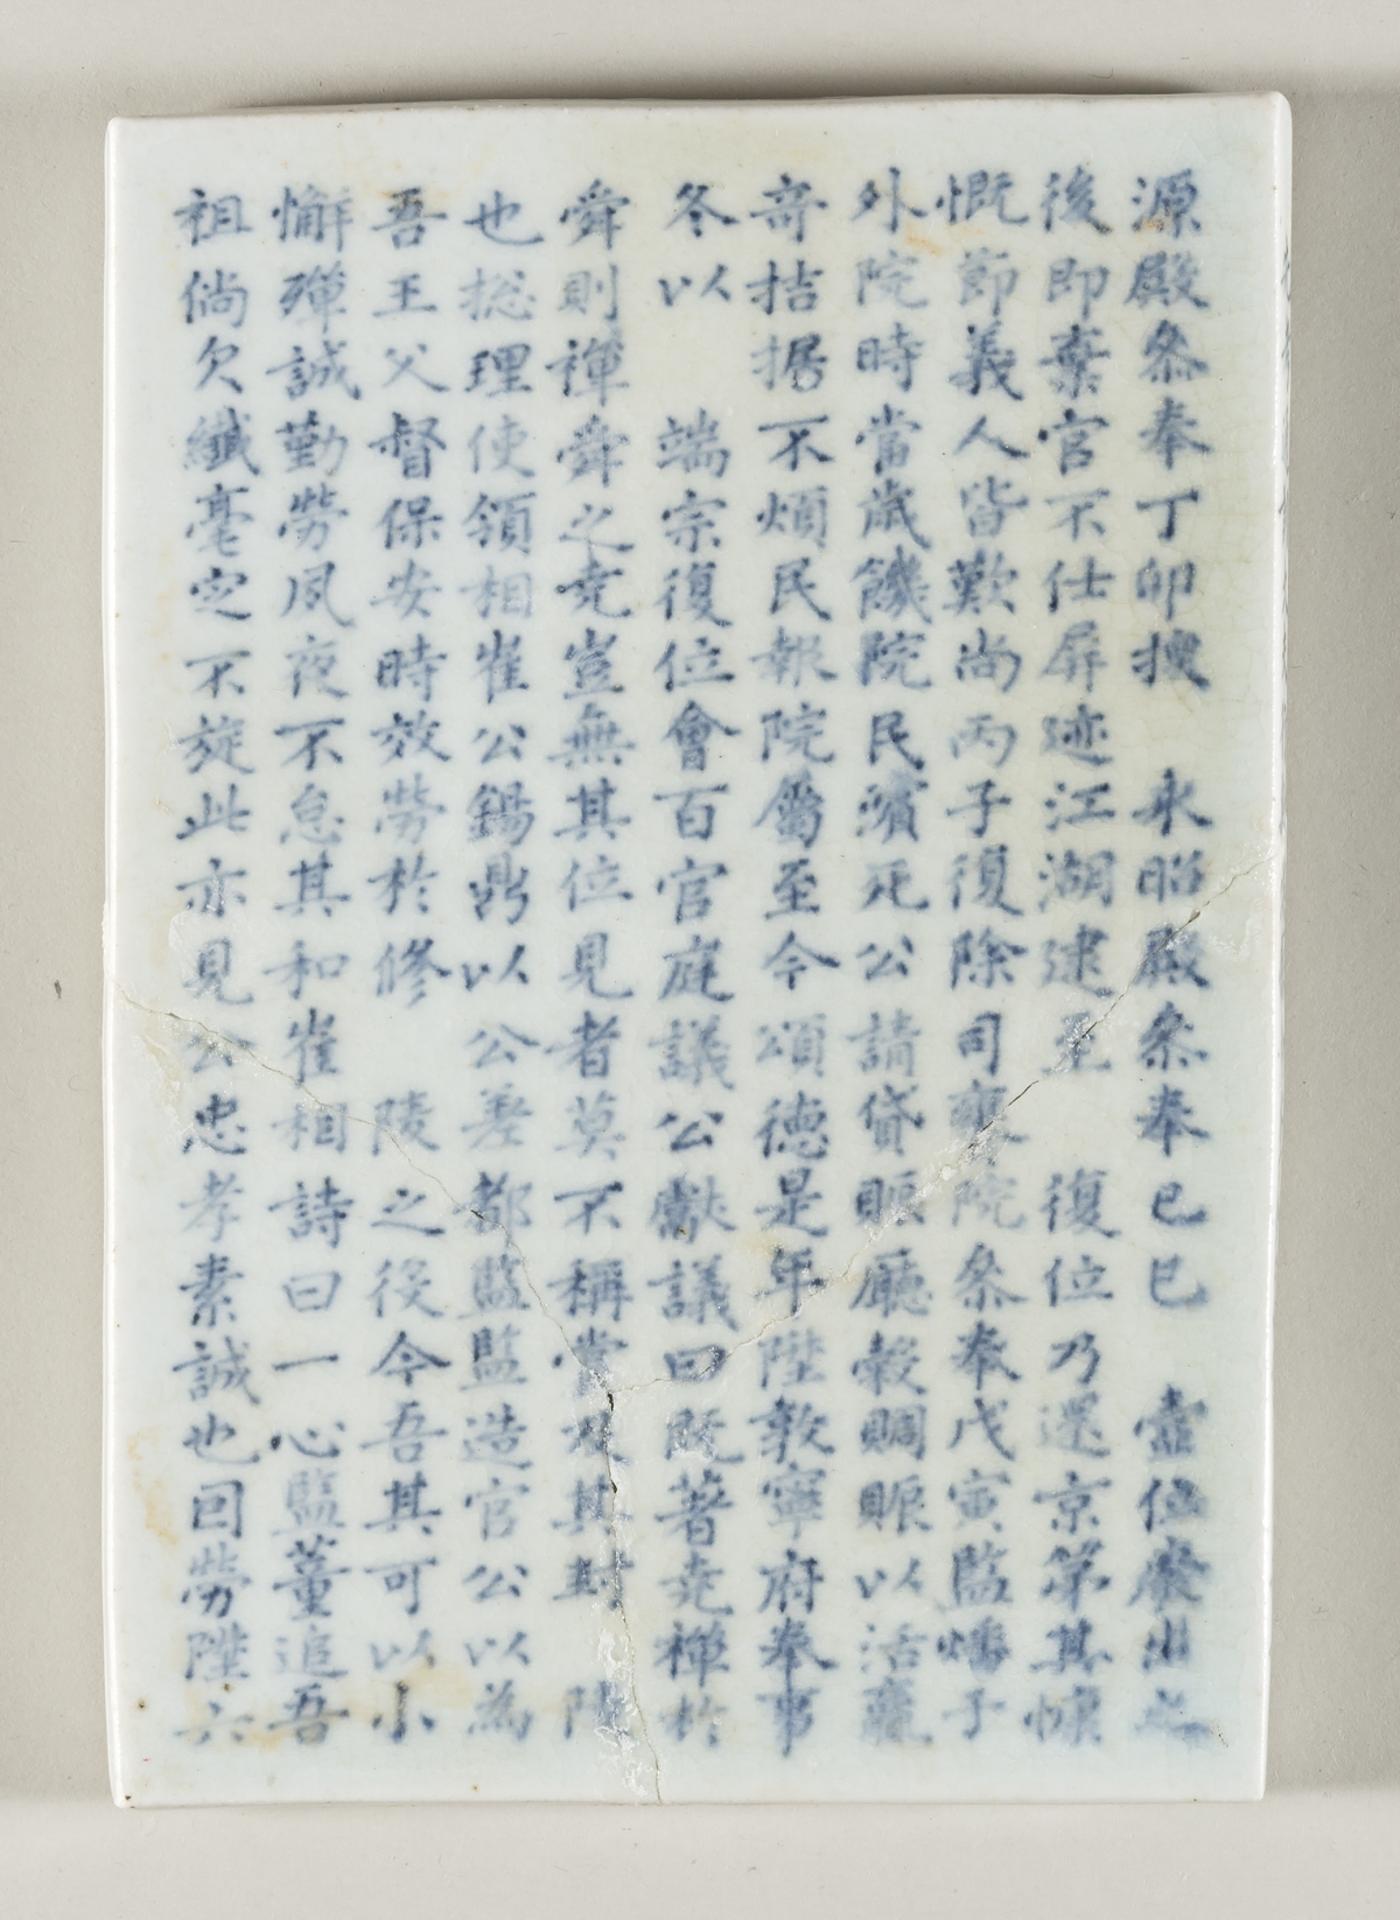 源殿叅奉丁卯擢 永昭殿叅奉己巳 壼位廢出之
後即棄官不仕屏迹江湖逮至 復位乃還京第其慷
慨節義人皆歎尚丙子復除司饔院叅奉戊寅監燔于
外院時當歲饑院民濱死公請貸賑廳穀賙賑以活竈
奇拮据不煩民報院屬至今頌德是年陞敦寧府奉事
冬以 端宗復位會百官庭議公獻議曰旣著堯禪於
舜則禪舜之堯豈無其位見者莫不稱當及其封 陵
也捴理使領相崔公錫鼎以公差都監監造官公以為
吾王父督保安時效勞於修 陵之役今吾其可以小
懈殫誠勤勞夙夜不怠其和崔相詩曰一心監董追吾
祖倘欠纖毫定不旋此亦見公忠孝素誠也因勞陞六